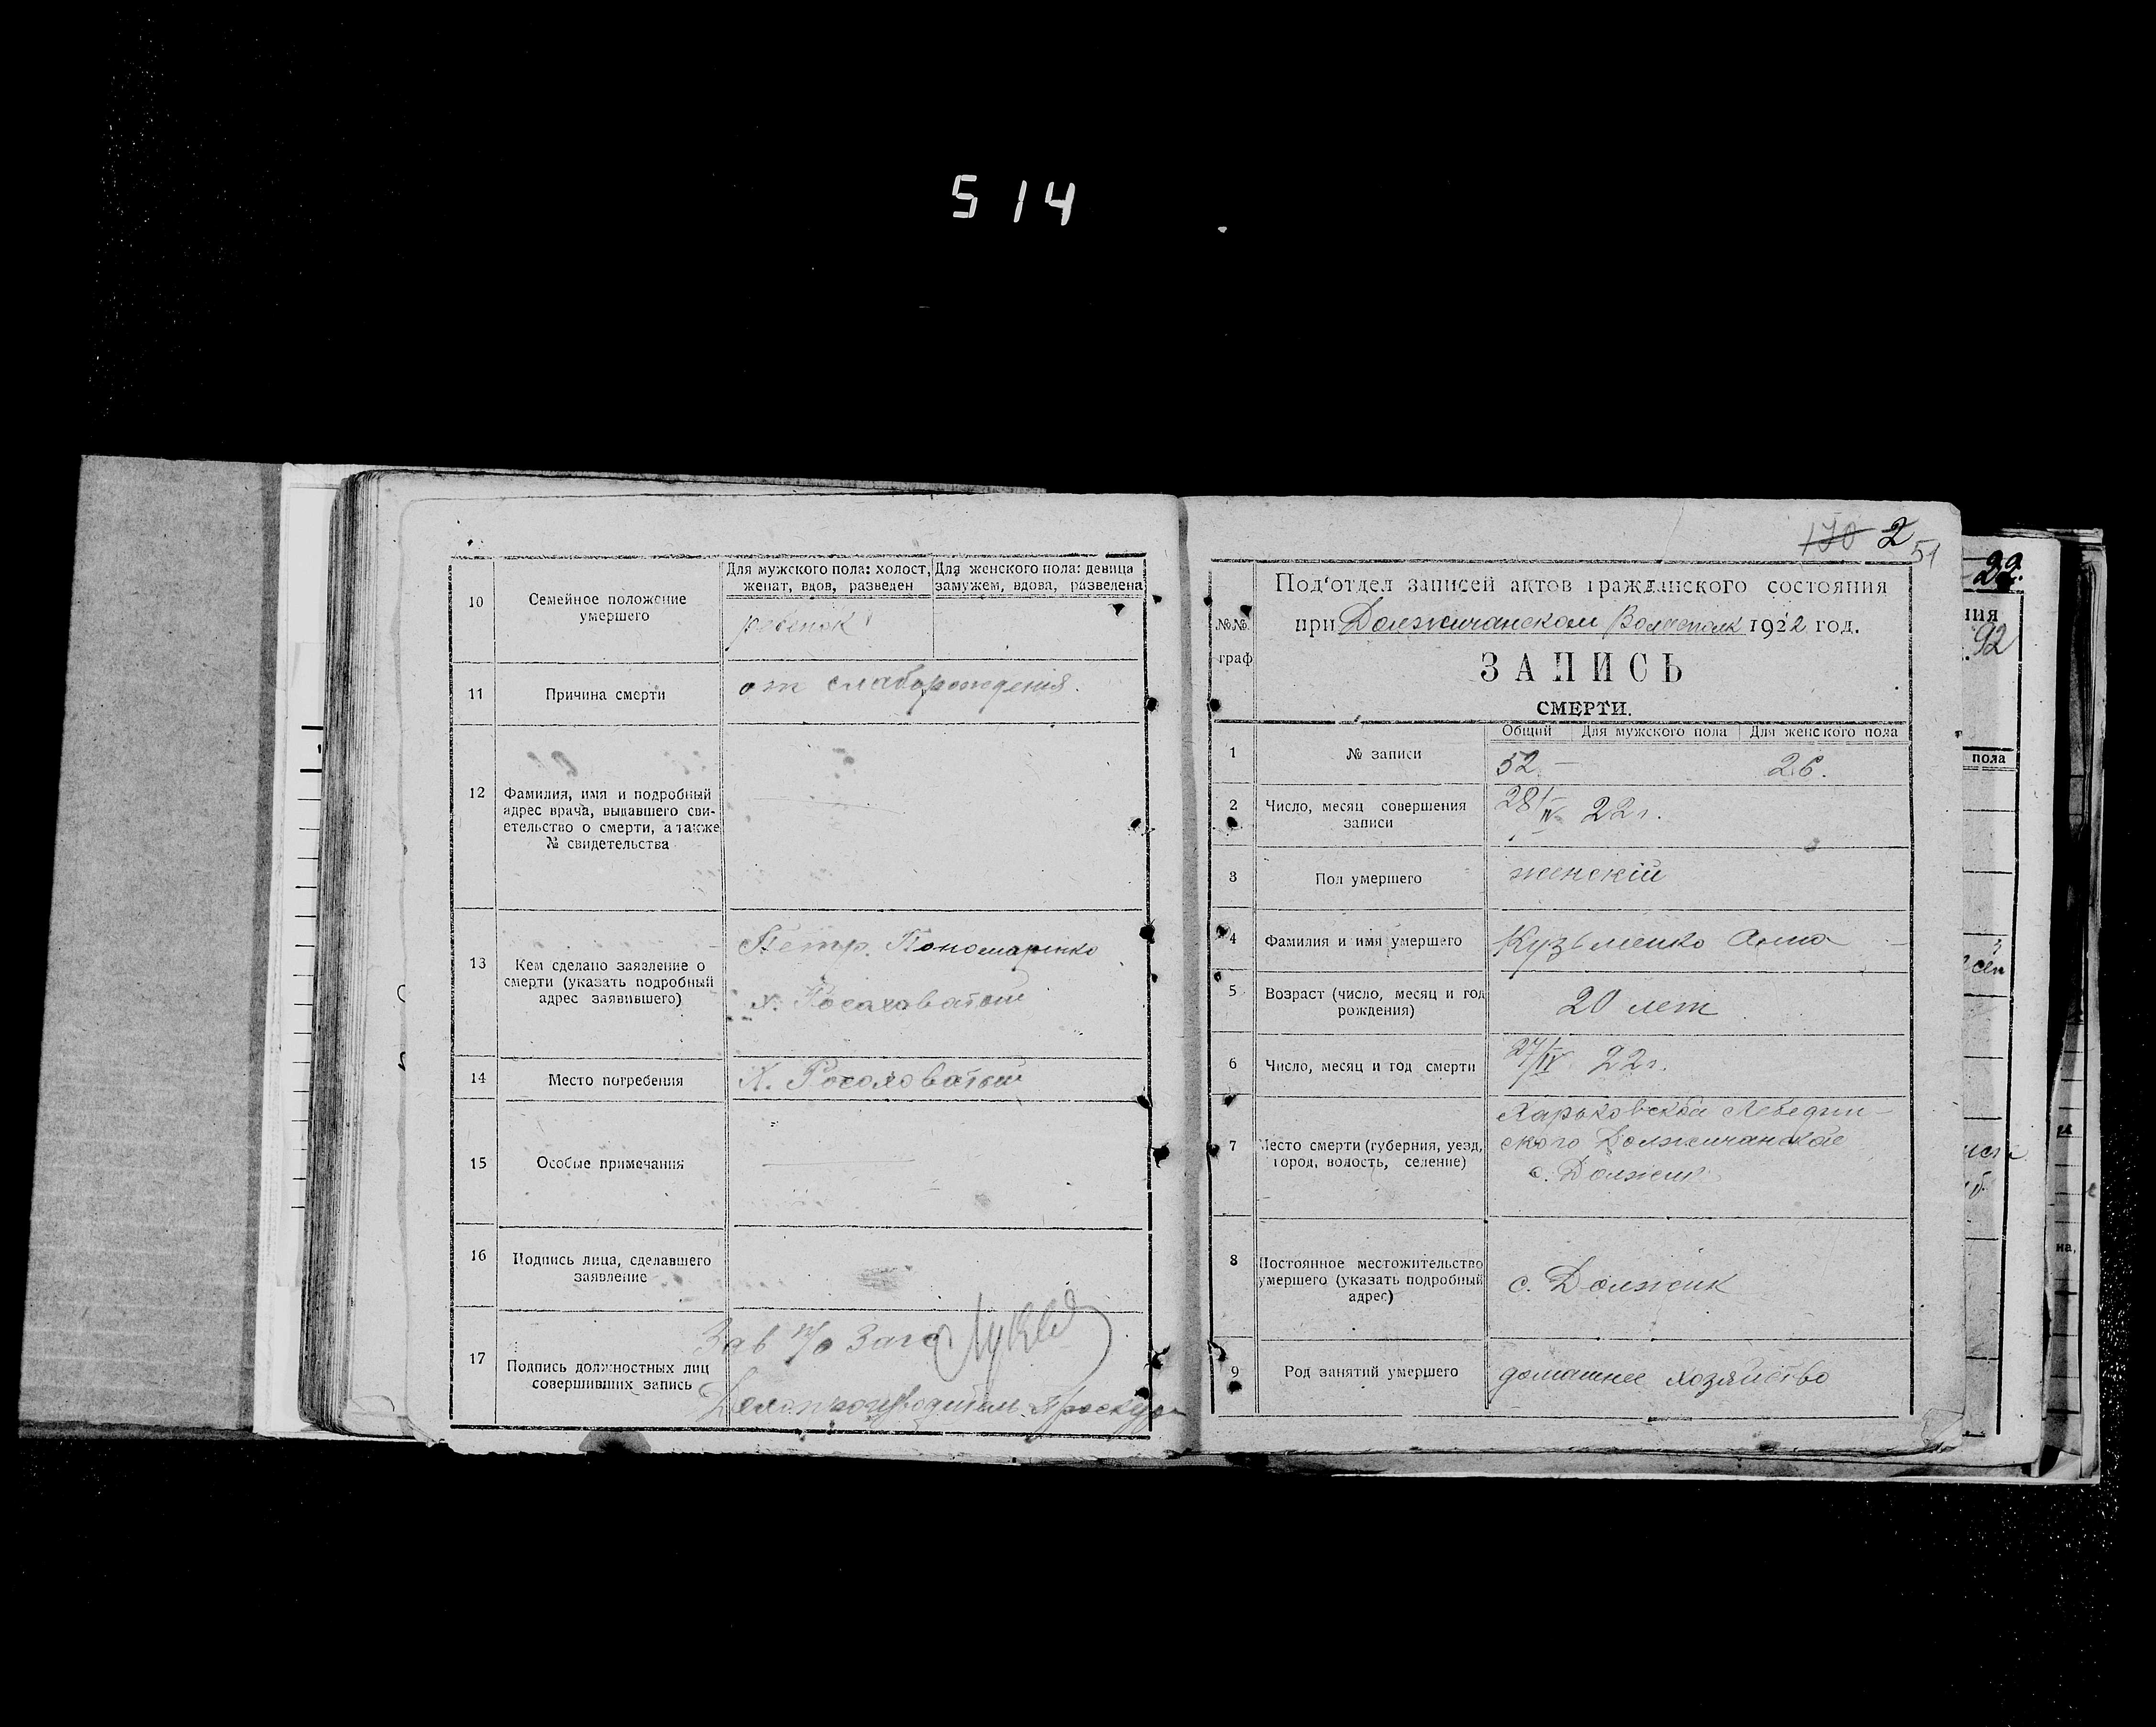 514
10
Семейное положение
умершего
Для мужского пола: холост,
женат, вдов, разведен
Для женского пола: девица
замужем, вдова, разведена
ребенок
11
Причина смерти
от слаборождения.
12
Фамилия, имя и подробный
адрес врача, выдавшего сви-
етельство о смерти, а также
№ свидетельства
13
Кем сделано заявление о
смерти (указать подробный
адрес заявившего)
Петр. Пономаренко
х. Росоховатый
14
Место погребения
Х. Росоховатый
15
Особые примечания
16
Подпись лица, сделавшего
заявление
17
Подпись должностных лиц
совершивших запись
Зав п/о Загс
Делопроизводитель
130 2
51
№№
граф
Под'отдел записей актов гражданского состояния
при Должичанском Волисполк 1922 год.
ЗАПИСЬ
СМЕРТИ.
Общий Для мужского пола Для женского пола
1
№ записи
52 — 26.
2
Число, месяц совершения
записи
28/IV 22 г.
3
Пол умершего
женскій
4
Фамилия и имя умершего
Кузьменко Анна
5
Возраст (число, месяц и год
рождения)
20 лет
6
Число, месяц и год смерти
27/IV 22 г.
7
Место смерти (губерния, уезд,
город, волость, селение)
Харьковской Лебедин-
ского Должичанской
с. Должик
8
Постоянное местожительство
умершего (указать подробный
адрес)
с. Должик
9
Род занятий умершего
домашнее хозяйство
22.
ния
92
пола
на,